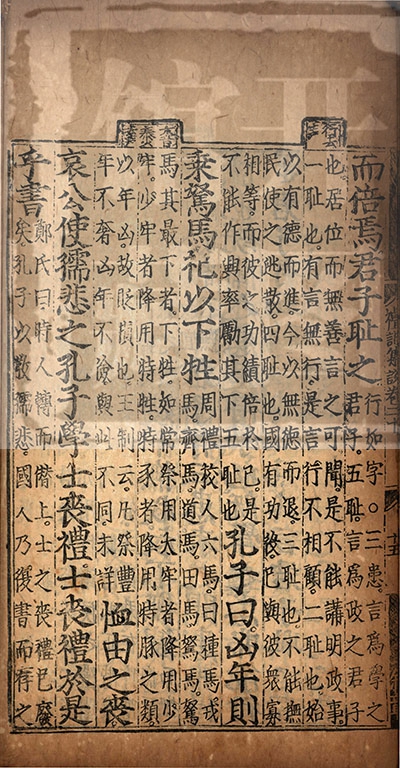 而倍焉君子耻之
行如字○三患言爲學之
君子五耻言爲政之君子
也居位而無善言之可聞是不能講明政事
一耻也有言無行是言行不相顧二耻也始
以有德而進今以無德而退三耻也不能撫
民使之逃散四耻也國有功役已與彼衆寡
相等而彼之功績倍於已是
不能作興率勵其下五耻也
孔子曰凶年則
乘駑馬祀以下牲
周禮校人六馬曰種馬戎
馬齊馬道馬田馬駑馬駑
馬其最下者下牲如常祭用太牢者降用少
牢少牢者降用特牲特豕者降用特豚之類
以年凶故貶損也王制云凡祭豐
年不奢凶年不儉與此不同未詳
恤由之喪
哀公使孺悲之孔子學士喪禮士喪禮於是
乎書
鄭氏曰時人轉而僭上士之喪禮已廢
矣孔子以教孺悲國人乃復書而存之